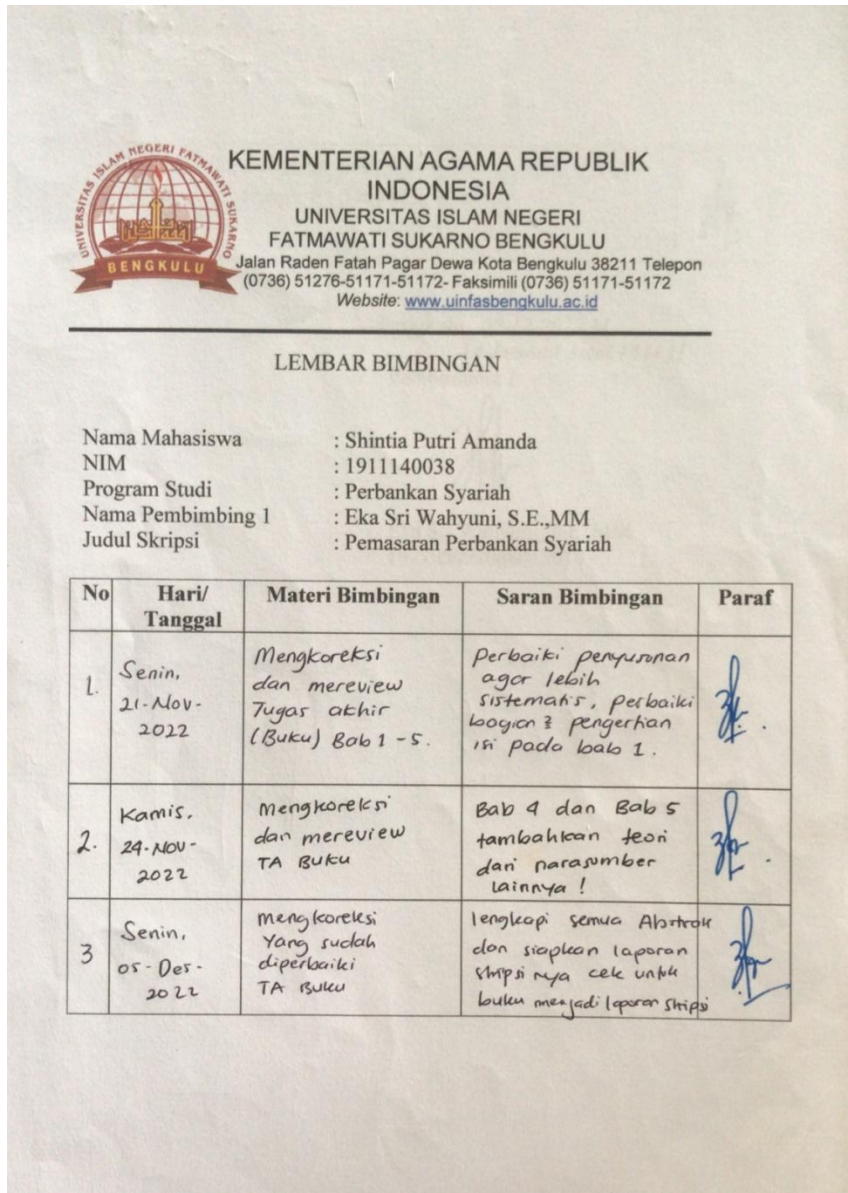 UNIVERSITAS ISLAM NEGERI FATMAWATI SUKARNO
BENGKULU
KEMENTERIAN AGAMA REPUBLIK
INDONESIA
UNIVERSITAS ISLAM NEGERI
FATMAWATI SUKARNO BENGKULU
Jalan Raden Fatah Pagar Dewa Kota Bengkulu 38211 Telepon
(0736) 51276-51171-51172- Faksimili (0736) 51171-51172
Website: www.uinfasbengkulu.ac.id
LEMBAR BIMBINGAN
Nama Mahasiswa : Shintia Putri Amanda
NIM : 1911140038
Program Studi : Perbankan Syariah
Nama Pembimbing 1 : Eka Sri Wahyuni, S.E.,MM
Judul Skripsi : Pemasaran Perbankan Syariah
No Hari/ Tanggal Materi Bimbingan Saran Bimbingan Paraf
1.
Senin,
21-Nov-
2022
Mengkoreksi
dan mereview
Tugas akhir
(Buku) Bab 1-5.
Perbaiki penyusunan
agar lebih
sistematis, perbaiki
bagian pengertian
isi pada bab 1.
2.
Kamis,
24-Nov-
2022
Mengkoreksi
dan mereview
TA Buku
Bab 4 dan Bab 5
tambahkan teori
dari narasumber
lainnya!
3
Senin,
05-Des-
2022
mengkoreksi
Yang sudah
diperbaiki
TA Buku
lengkapi semua Abstrak
dan siapkan laporan
skripsi nya cek untuk
buku menjadi laporan skripsi